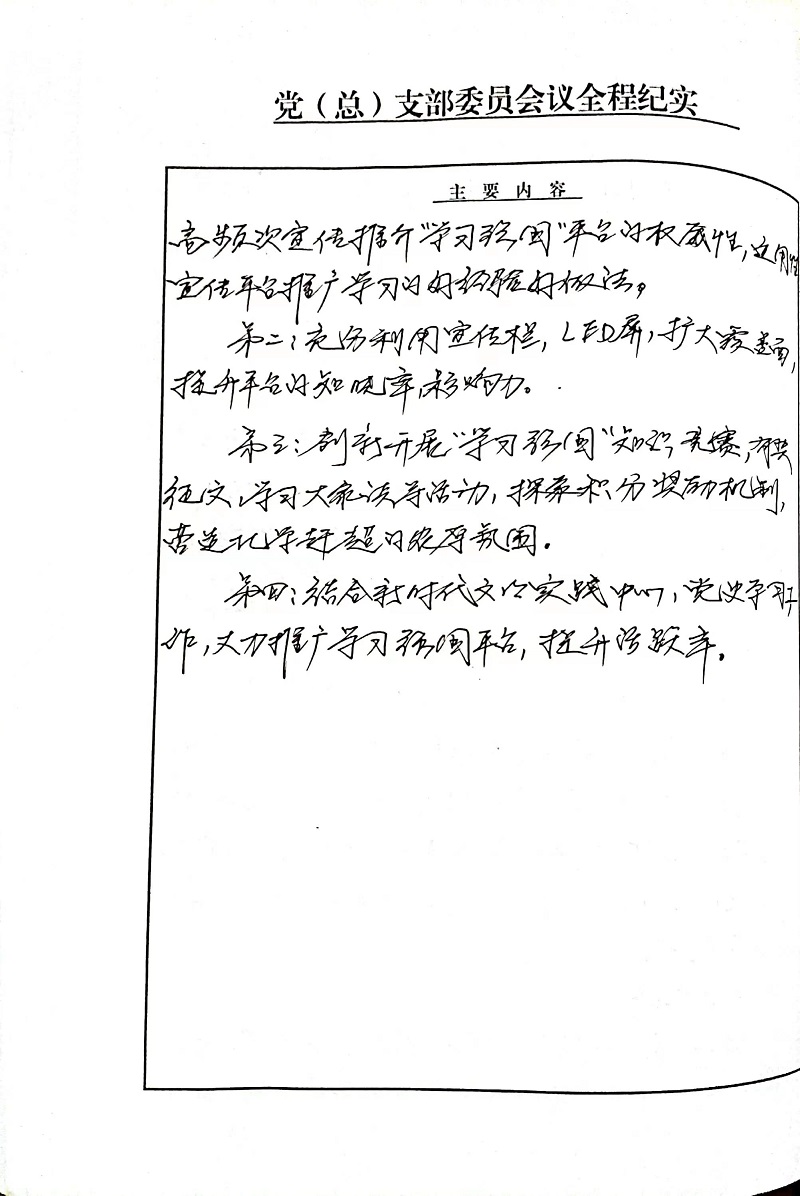 党（总）支部委员会议全程纪实
主要内容
高频次宣传推介“学习强国”平台的权威性，适用性
宣传平台推广学习的好经验好做法。
第二：充分利用宣传栏，LED屏，扩大覆盖面，
提升平台的知晓率，影响力。
第三：创新开展“学习强国”知识竞赛，有奖
征文、学习大家谈等活动，探索积分奖励机制，
营造比学赶超的浓厚氛围。
第四：结合新时代文明实践中心，党史学习工
作，大力推广学习强国平台，提升活跃率。